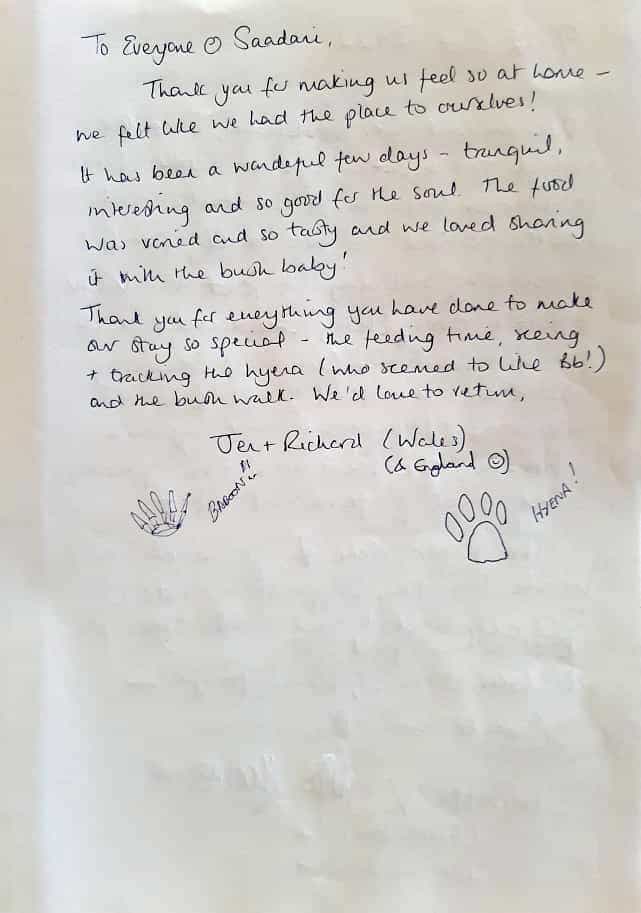 To Everyone @ Saadani,
Thank you for making us feel so at home -
we felt like we had the place to ourselves!
It has been a wonderful few days - tranquil,
interesting and so good for the soul. The food
was varied and so tasty and we loved sharing
it with the bush baby!
Thank you for everything you have done to make
our stay so special - the feeding time, seeing
+ tracking the hyena (who seemed to like Bb!)
and the bush walk. We'd love to return,
Jen + Richard (Wales)
(& England ☺)
BABOON!!
HYENA!